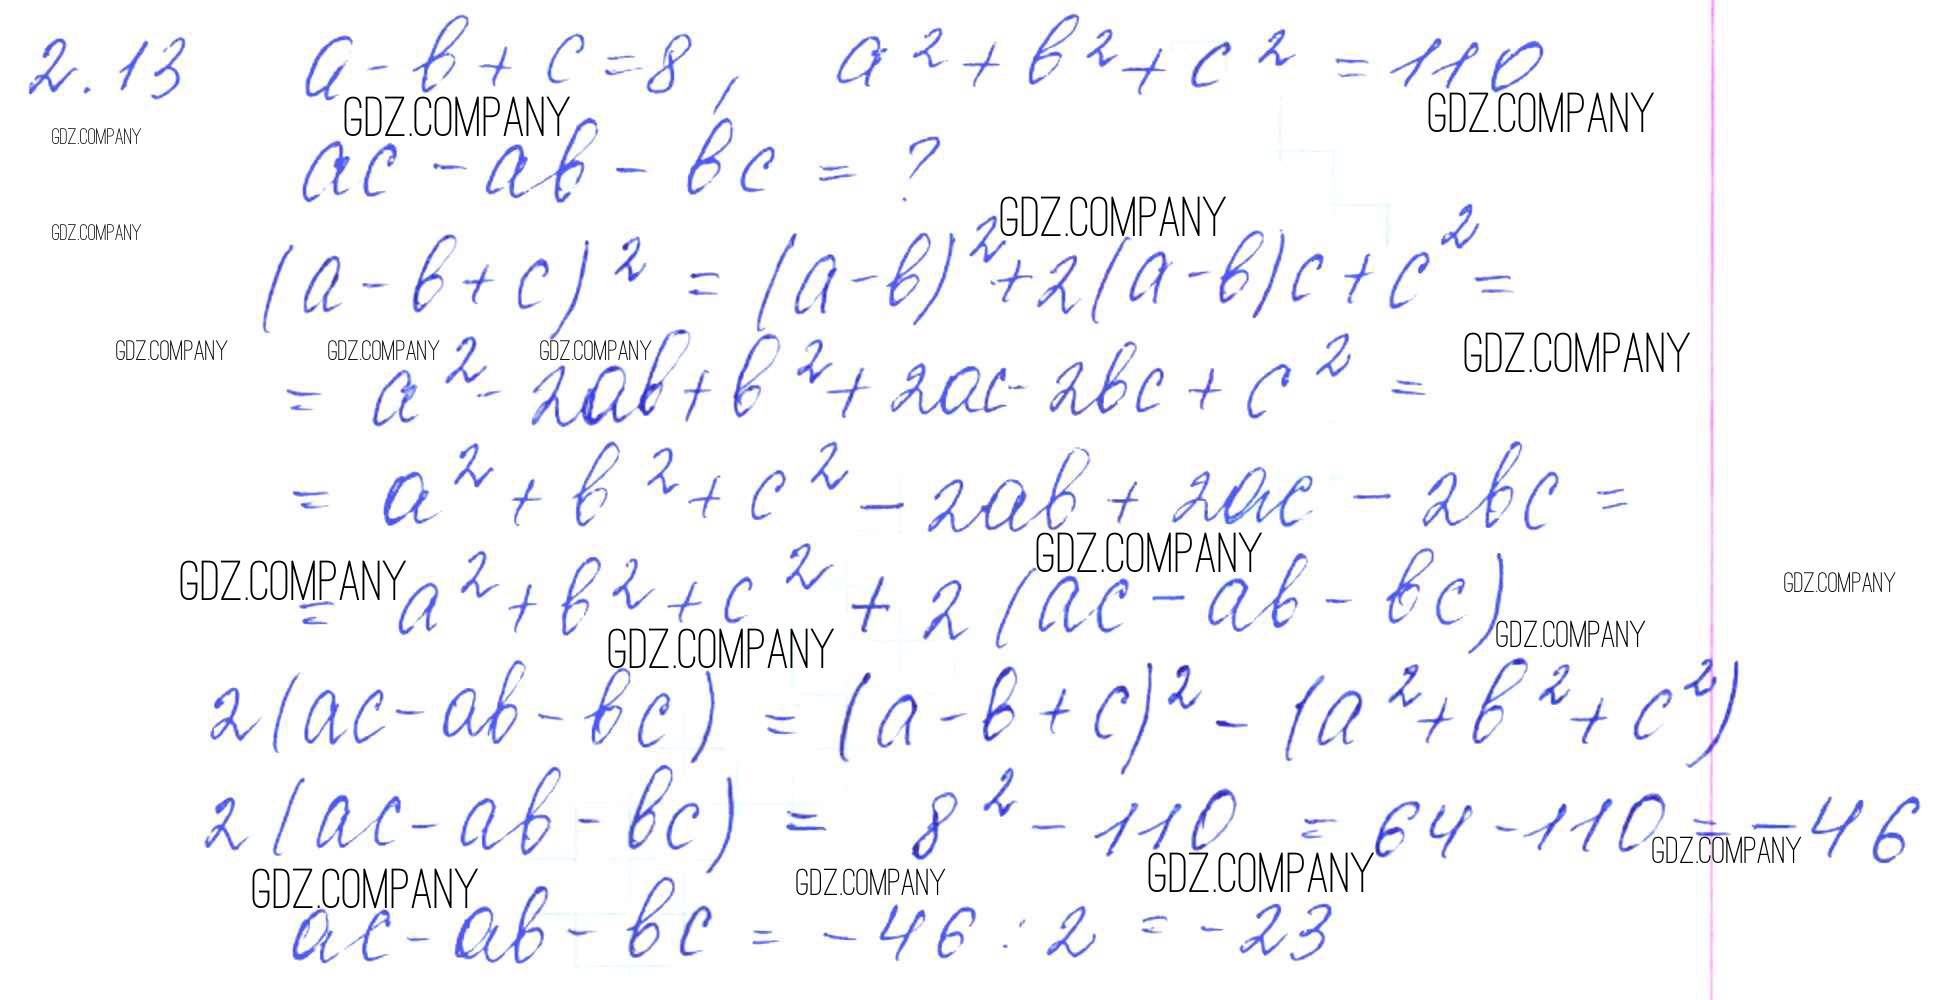 2.13 a - b + c = 8, a² + b² + c² = 110
GDZ.COMPANY GDZ.COMPANY GDZ.COMPANY
ac - ab - bc = ?
GDZ.COMPANY GDZ.COMPANY
(a - b + c)² = (a - b)² + 2(a - b)c + c² =
GDZ.COMPANY GDZ.COMPANY GDZ.COMPANY GDZ.COMPANY
= a² - 2ab + b² + 2ac - 2bc + c² =
= a² + b² + c² - 2ab + 2ac - 2bc =
GDZ.COMPANY GDZ.COMPANY GDZ.COMPANY
= a² + b² + c² + 2(ac - ab - bc)
GDZ.COMPANY GDZ.COMPANY
2(ac - ab - bc) = (a - b + c)² - (a² + b² + c²)
2(ac - ab - bc) = 8² - 110 = 64 - 110 = -46
GDZ.COMPANY GDZ.COMPANY GDZ.COMPANY GDZ.COMPANY
ac - ab - bc = -46 : 2 = -23